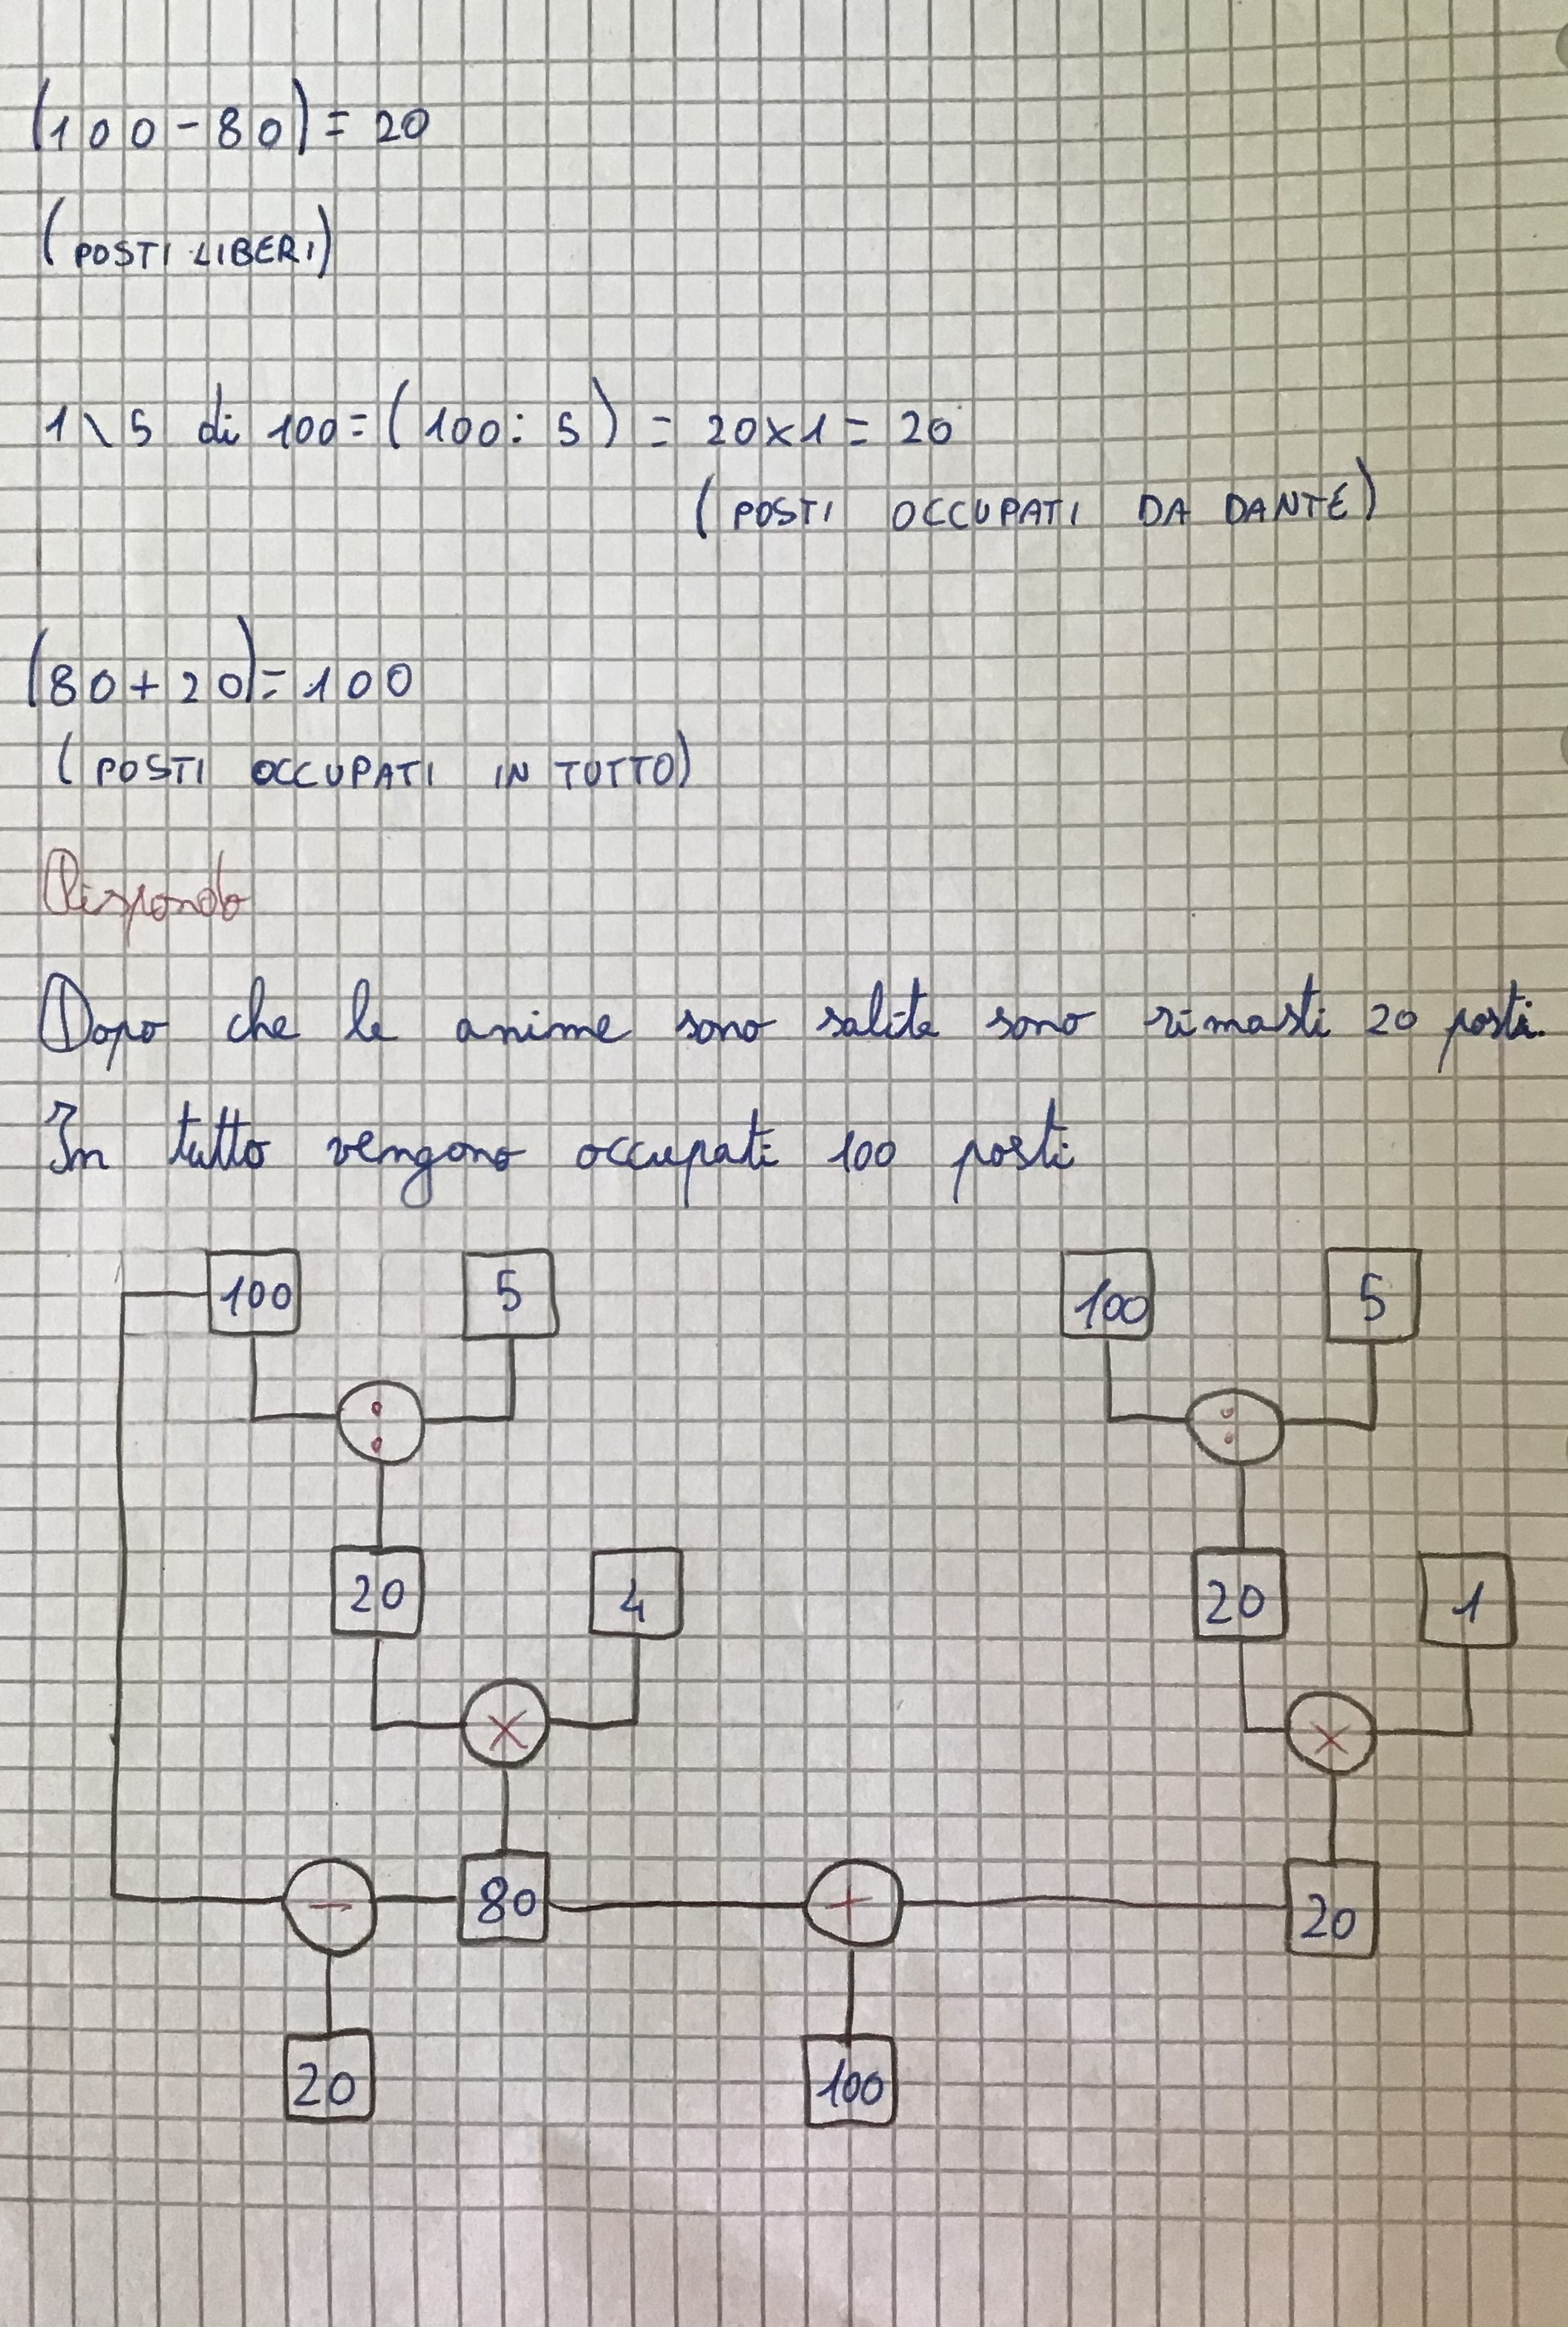 (100-80)= 20
(POSTI LIBERI)
1\5 di 100=(100: 5) = 20x1= 20
(POSTI OCCUPATI DA DANTE)
(80+20)=100
(POSTI OCCUPATI IN TUTTO)
Rispondo
Dopo che le anime sono salite sono rimasti 20 posti.
In tutto vengono occupati 100 posti
100 5 100 5
: :
20 4 20 1
x x
- 80 + 20
20 100